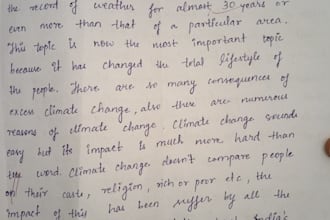 the record of weather for almost 30 years or
even more than that of a particular area.
This topic is now the most important topic
because it has changed the total lifestyle of
the people. There are so many consequences of
excess climate change, also there are numerous
reasons of climate change. Climate change sounds
easy but its impact is much more hard than
the word. Climate change doesn't compare people
on their caste, religion, rich or poor etc, the
impact of this has been suffer by all the
India's